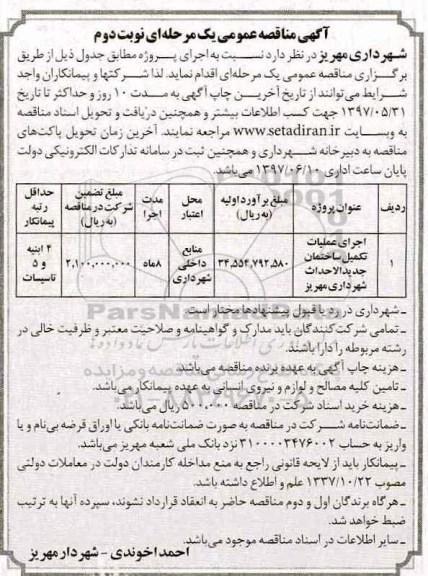 آگهی مناقصه عمومی یک مرحله‌ای نوبت دوم
شهرداری مهریز در نظر دارد نسبت به اجرای پروژه مطابق جدول ذیل از طریق
برگزاری مناقصه عمومی یک مرحله‌ای اقدام نماید. لذا شرکتها و پیمانکاران واجد
شرایط می‌توانند از تاریخ آخرین چاپ آگهی به مدت ۱۰ روز و حداکثر تا تاریخ
۱۳۹۷/۰۵/۳۱ جهت کسب اطلاعات بیشتر و همچنین دریافت و تحویل اسناد مناقصه
به وبسایت www.setadiran.ir مراجعه نمایند. آخرین زمان تحویل پاکت‌های
مناقصه به دبیرخانه شهرداری و همچنین ثبت در سامانه تدارکات الکترونیکی دولت
پایان ساعت اداری ۱۳۹۷/۰۶/۱۰ می‌باشد.
ردیف | عنوان پروژه | مبلغ برآورد اولیه (به ریال) | محل اعتبار | مدت اجرا | مبلغ تضمین شرکت در مناقصه (به ریال) | حداقل رتبه پیمانکار
۱ | اجرای عملیات تکمیل ساختمان جدیدالاحداث شهرداری مهریز | ۳۴,۵۵۴,۷۹۲,۵۸۰ | منابع داخلی شهرداری | ۸ماه | ۲,۱۰۰,۰۰۰,۰۰۰ | ۴ ابنیه و ۵ تاسیسات
ـ شهرداری در رد یا قبول پیشنهادها مختار است.
ـ تمامی شرکت‌کنندگان باید مدارک و گواهینامه و صلاحیت معتبر و ظرفیت خالی در
رشته مربوطه را دارا باشند.
ـ هزینه چاپ آگهی به عهده برنده مناقصه می‌باشد.
ـ تامین کلیه مصالح و لوازم و نیروی انسانی به عهده پیمانکار می‌باشد.
ـ هزینه خرید اسناد شرکت در مناقصه ۵۰۰,۰۰۰ ریال می‌باشد.
ـ ضمانت‌نامه شرکت در مناقصه به صورت ضمانت‌نامه بانکی یا اوراق قرضه بی‌نام و یا
واریز به حساب ۳۱۰۰۰۰۳۴۷۶۰۰۲ نزد بانک ملی شعبه مهریز می‌باشد.
ـ پیمانکار باید از لایحه قانونی راجع به منع مداخله کارمندان دولت در معاملات دولتی
مصوب ۱۳۳۷/۱۰/۲۲ علم و اطلاع داشته باشد.
ـ هرگاه برندگان اول و دوم مناقصه حاضر به انعقاد قرارداد نشوند، سپرده آنها به ترتیب
ضبط خواهد شد.
ـ سایر اطلاعات در اسناد مناقصه موجود می‌باشد.
احمد اخوندی - شهردار مهریز